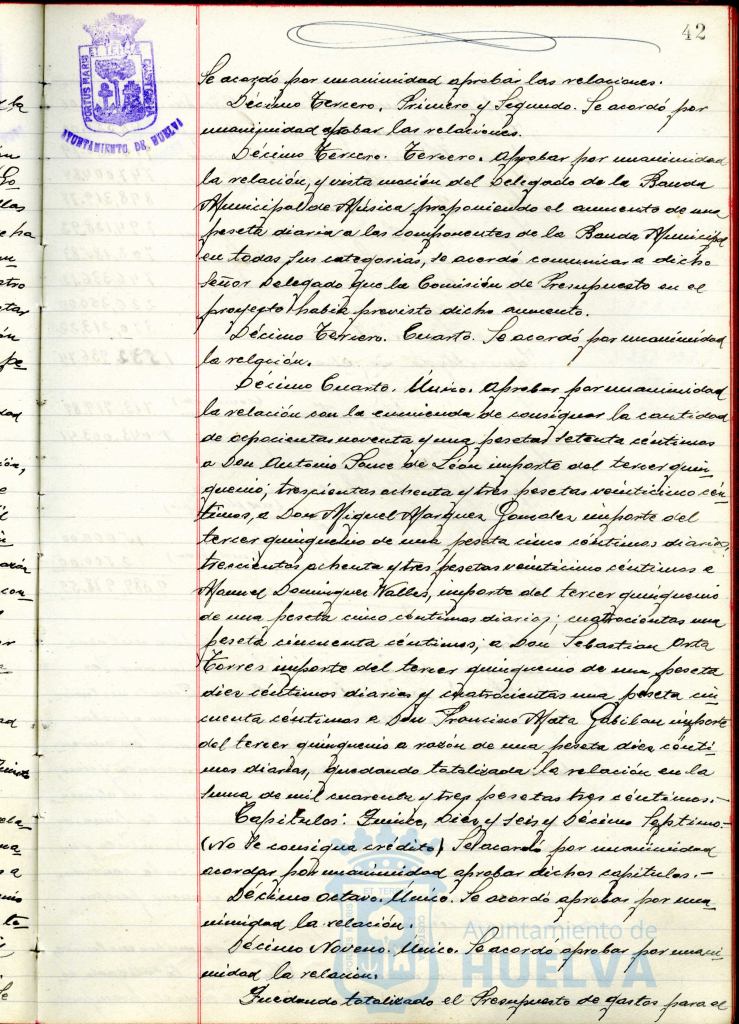 42
PORTUS MARIS ET TERRAE CUSTODIA
AYUNTAMIENTO, DE, HUELVA
Se acordó por unanimidad aprobar las relaciones.
Décimo Tercero. Primero y Segundo. Se acordó por
unanimidad aprobar las relaciones.
Décimo Tercero. Tercero. Aprobar por unanimidad
la relación, y vista moción del Delegado de la Banda
Municipal de Música proponiendo el aumento de una
peseta diaria a los componentes de la Banda Municipal
en todas sus categorias, se acordó comunicar a dicho
Señor Delegado que la Comisión de Presupuesto en el
proyecto habia previsto dicho aumento.
Décimo Tercero. Cuarto. Se acordó por unanimidad
la relación.
Décimo Cuarto. Único. Aprobar por unanimidad
la relación con la enmienda de consignar la cantidad
de ochocientas noventa y una pesetas setenta céntimos
a Don Antonio Ponce de León importe del tercer quin-
quenio; trescientas ochenta y tres pesetas veinticinco cén-
timos, a Don Miguel Marquez Gonzalez importe del
tercer quinquenio de una peseta cinco céntimos diarios,
trescientas ochenta y tres pesetas veinticinco céntimos a
Manuel Dominguez Valles, importe del tercer quinquenio
de una peseta cinco céntimos diarios; cuatrocientas una
peseta cincuenta céntimos; a Don Sebastian Orta
Torres importe del tercer quinquenio de una peseta
diez céntimos diarios y cuatrocientas una peseta cin
cuenta céntimos a Don Francisco Mata Gabilan importe
del tercer quinquenio a razón de una peseta diez cénti-
mos diarios, quedando totalizada la relación en la
suma de mil cuarenta y tres pesetas tres céntimos.-
Capítulos: Quince, Diez y Seis y Décimo Septimo.-
(No se consigna crédito) Se acordó por unanimidad
acordar por unanimidad aprobar dichos capitulos.-
Décimo Octavo. Único. Se acordó aprobar por una-
nimidad la relación.
Décimo Noveno. Único. Se acordó aprobar por unani-
midad la relación.
Quedando totalizado el Presupuesto de gastos para el
Ayuntamiento de
HUELVA